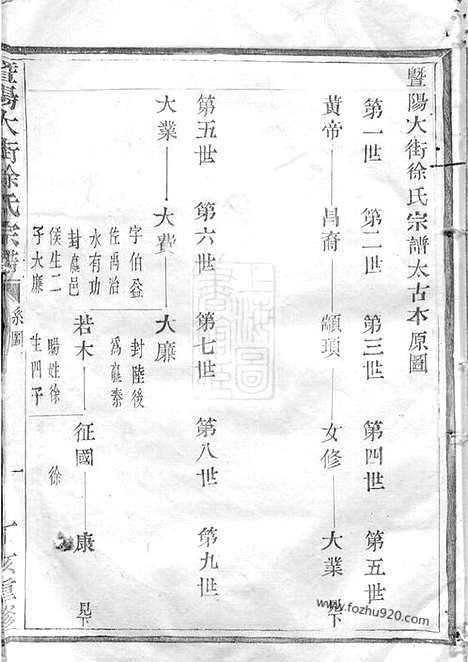 暨陽大街徐氏宗譜太古本原圖
第一世 第二世 第三世 第四世 第五世
黃帝 昌裔 顓頊 女修 大業 見下
第五世 第六世 第七世 第八世 第九世
大業 大費 大廉
字伯益
佐禹治
水有功
封嬴邑
侯生二
子大廉
封陸後
為嬴秦
若木 征國 康 見下
賜姓徐
生四子
徐
暨陽大街徐氏宗譜
系圖
一
丁亥重修
www.fozhu920.com